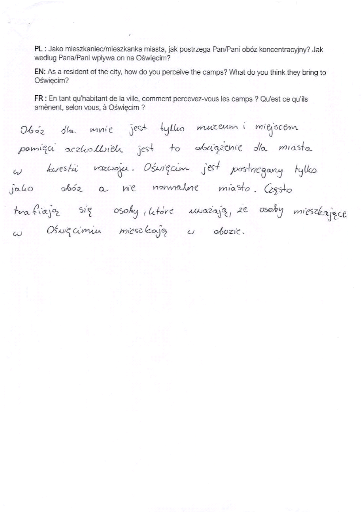 PL : Jako mieszkaniec/mieszkanka miasta, jak postrzega Pan/Pani obóz koncentracyjny? Jak
według Pana/Pani wpływa on na Oświęcim?
EN: As a resident of the city, how do you perceive the camps? What do you think they bring to
Oświęcim?
FR : En tant qu'habitant de la ville, comment percevez-vous les camps ? Qu'est ce qu'ils
amènent, selon vous, à Oświęcim ?
Obóz dla mnie jest tylko muzeum i miejscem
pamięci aczkolwiek jest to obciążenie dla miasta
w kwestii rozwoju. Oświęcim jest postrzegany tylko
jako obóz a nie normalne miasto. Często
trafiają się osoby, które uważają, że osoby mieszkające
w Oświęcimiu mieszkają w obozie.